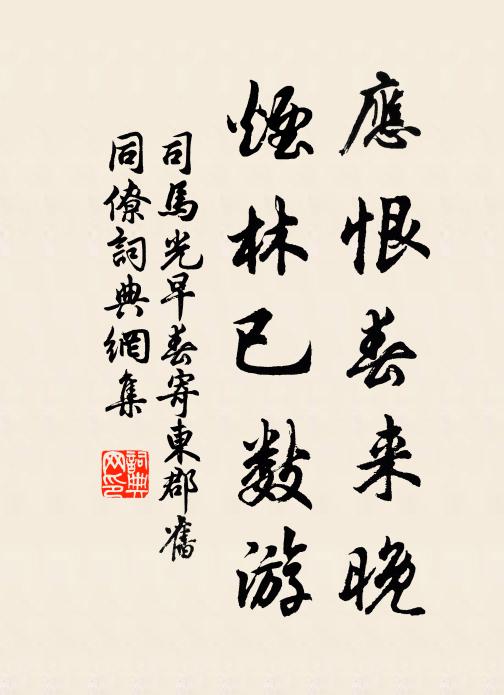 應恨春来晚
煙林已數游
司馬光早春寄東郡舊
同僚詞典網集
詞典
网印